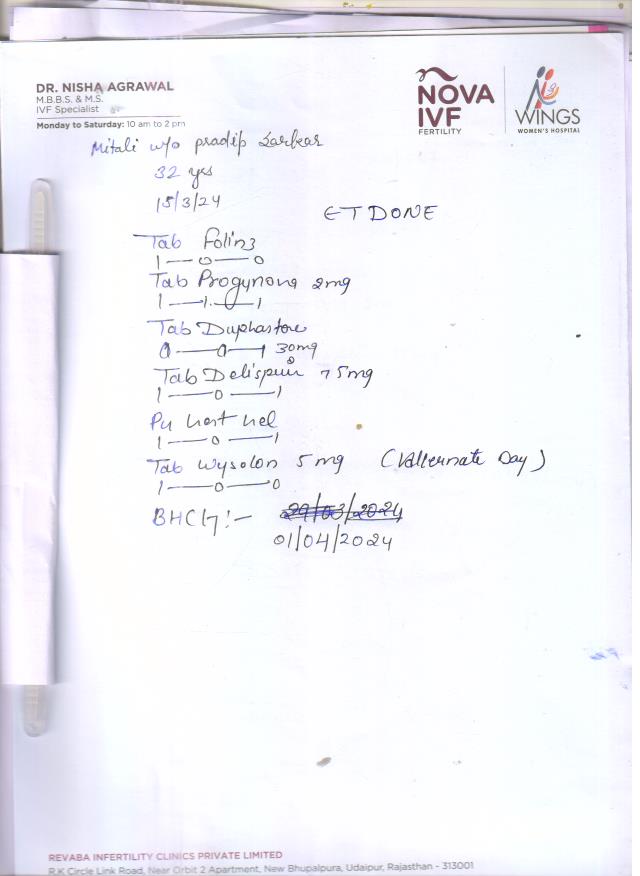 DR. NISHA AGRAWAL
M.B.B.S. & M.S.
IVF Specialist
Monday to Saturday: 10 am to 2 pm
NOVA
IVF
FERTILITY
WINGS
WOMEN'S HOSPITAL
Mitali w/o pradip Sarkar
32 yrs
15/3/24
ET DONE
Tab Folin3
1—0—0
Tab Progynova 2mg
1—1—1
Tab Duphaston
0—0—1 30mg
Tab Delisprin 75mg
1—0—1
1—0—1
Tab Wysolon 5 mg (Alternate Day)
1—0—0
BHCG :- 29/03/2024
01/04/2024
REVABA INFERTILITY CLINICS PRIVATE LIMITED
R.K Circle Link Road, Near Orbit 2 Apartment, New Bhupalpura, Udaipur, Rajasthan - 313001